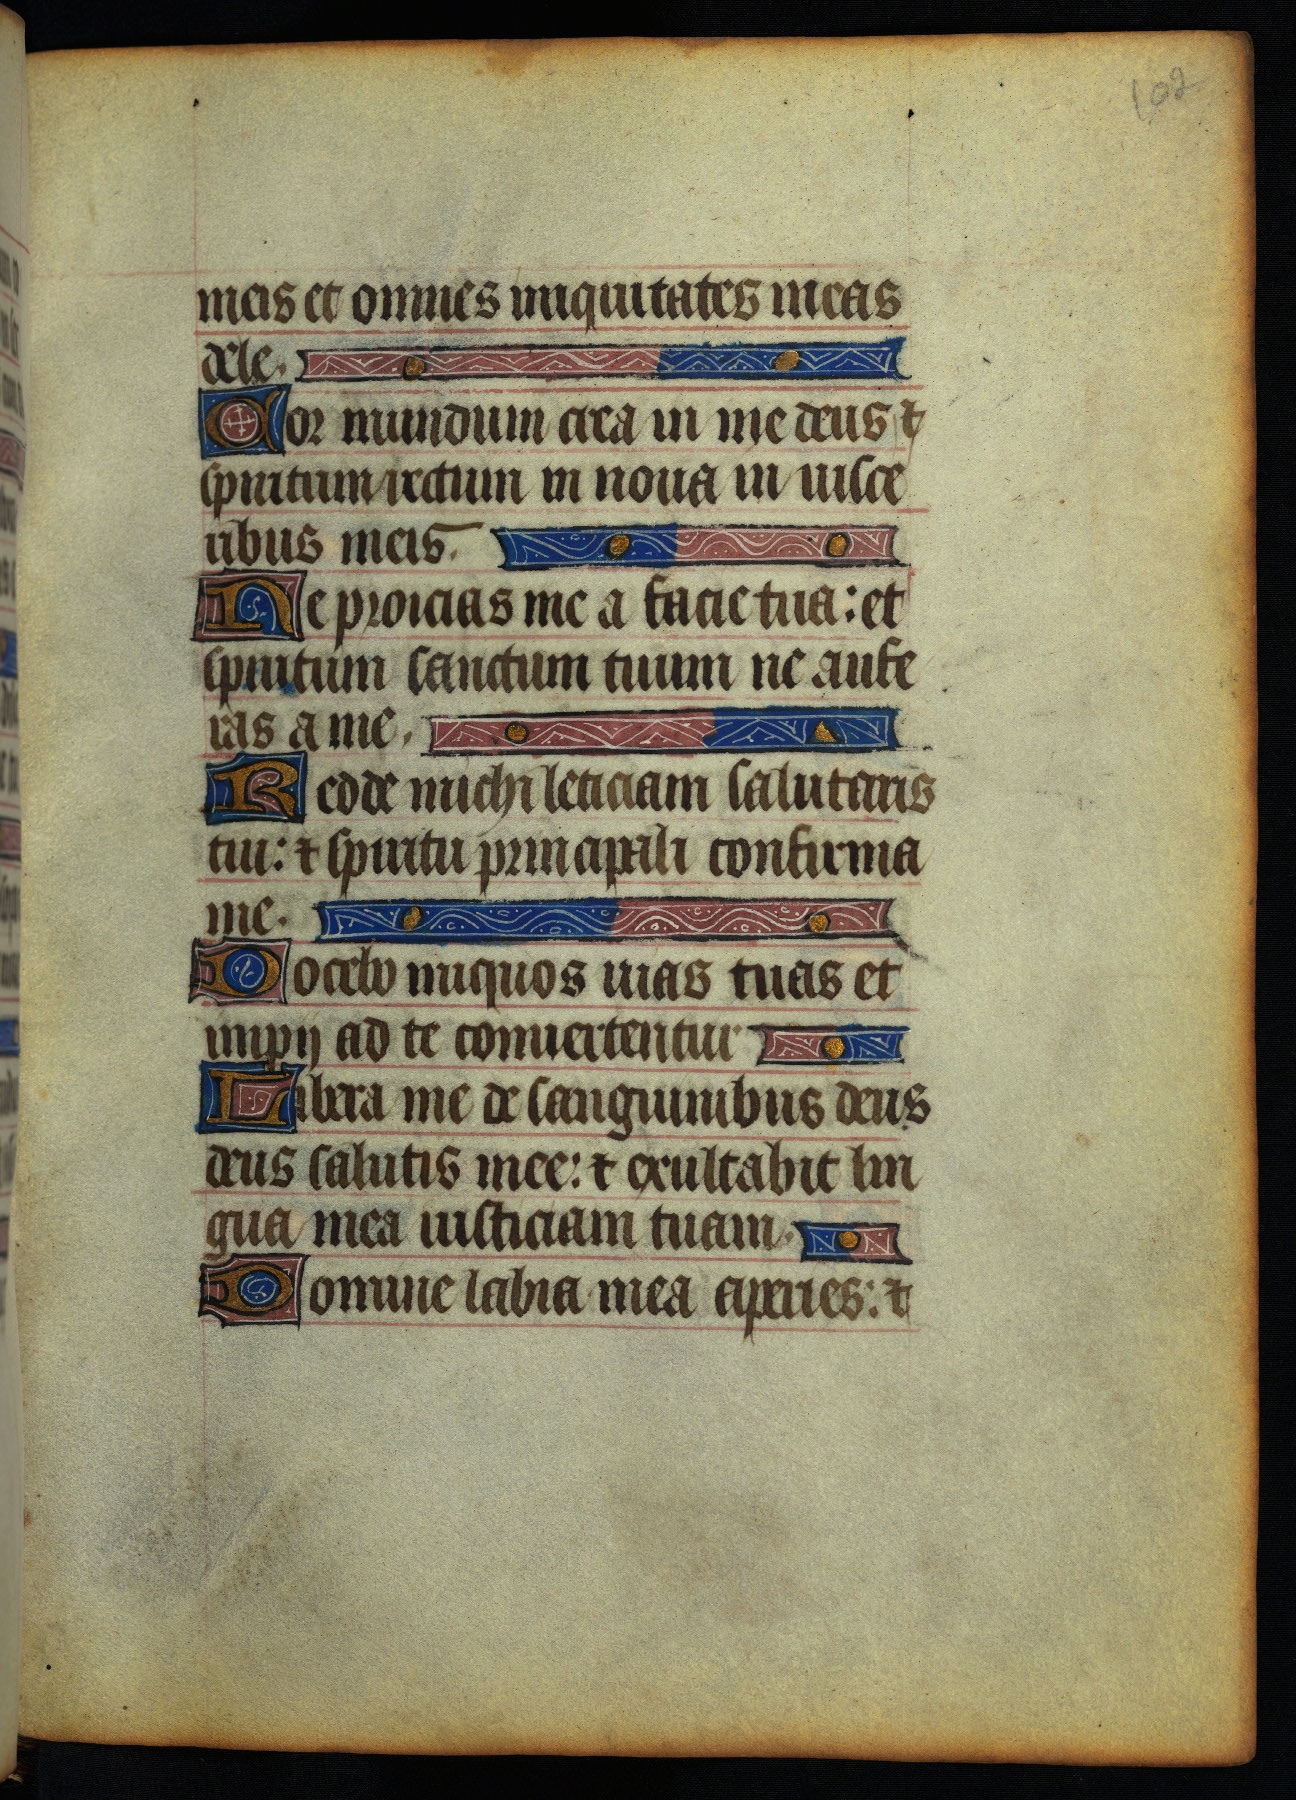 102
meis et omnes iniquitates meas
dele.
Cor mundum crea in me deus ⁊
spiritum rectum in noua in uisce
ribus meis.
Ne proicias me a facie tua: et
spiritum sanctum tuum ne aufe
ras a me.
Redde michi leticiam salutaris
tui: ⁊ spiritu principali confirma
me.
Docebo iniquos uias tuas et
impij ad te conuertentur
Libera me de sanguinibus deus
deus salutis mee: ⁊ exultabit lin
gua mea iusticiam tuam.
Domine labia mea aperies: ⁊